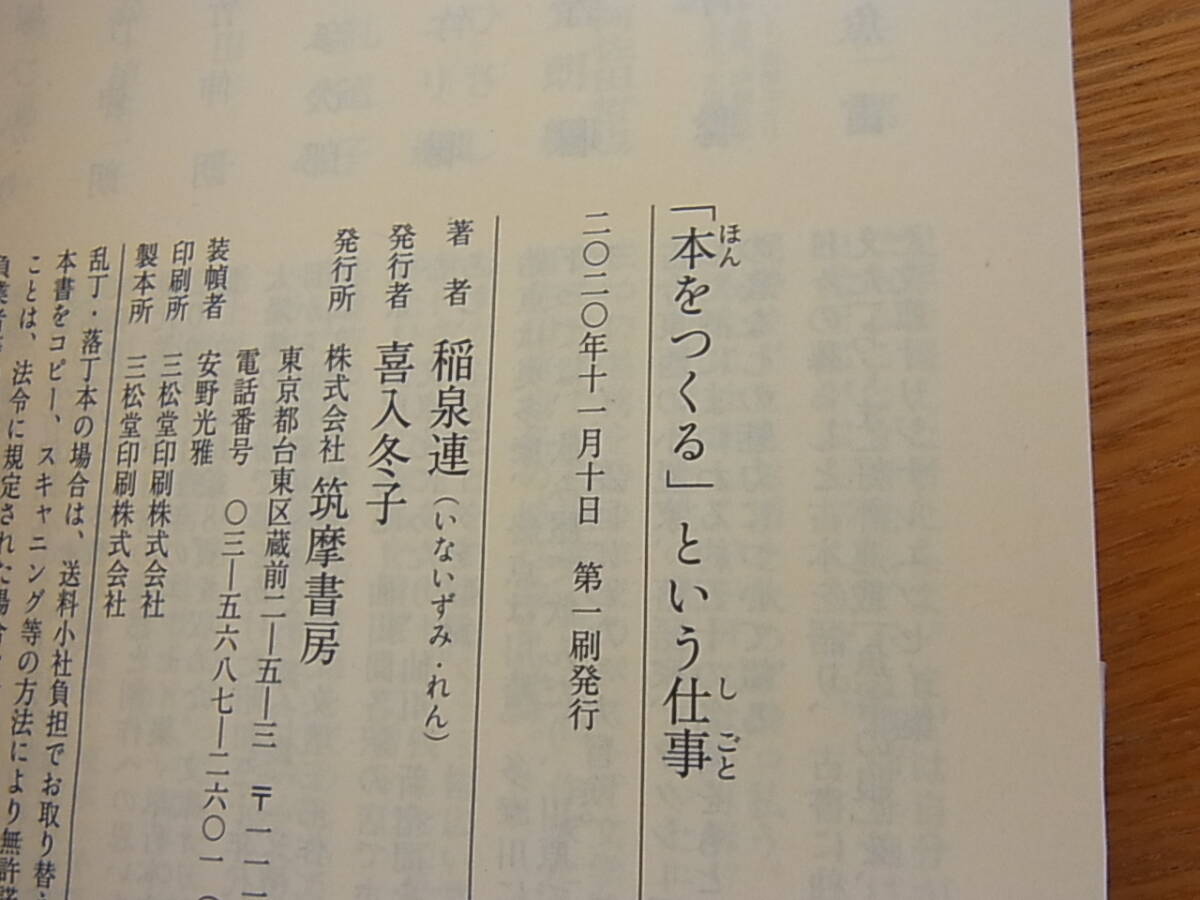 「本をつくる」という仕事
ほん
しごと
二〇二〇年十一月十日 第一刷発行
著者 稲泉連（いないずみ・れん）
発行者 喜入冬子
発行所 株式会社 筑摩書房
東京都台東区蔵前二―五―三 〒一一
電話番号 〇三―五六八七―二六〇一
装幀者 安野光雅
印刷所 三松堂印刷株式会社
製本所 三松堂印刷株式会社
乱丁・落丁本の場合は、送料小社負担でお取り替
本書をコピー、スキャニング等の方法により無許諾
ことは、法令に規定された場合